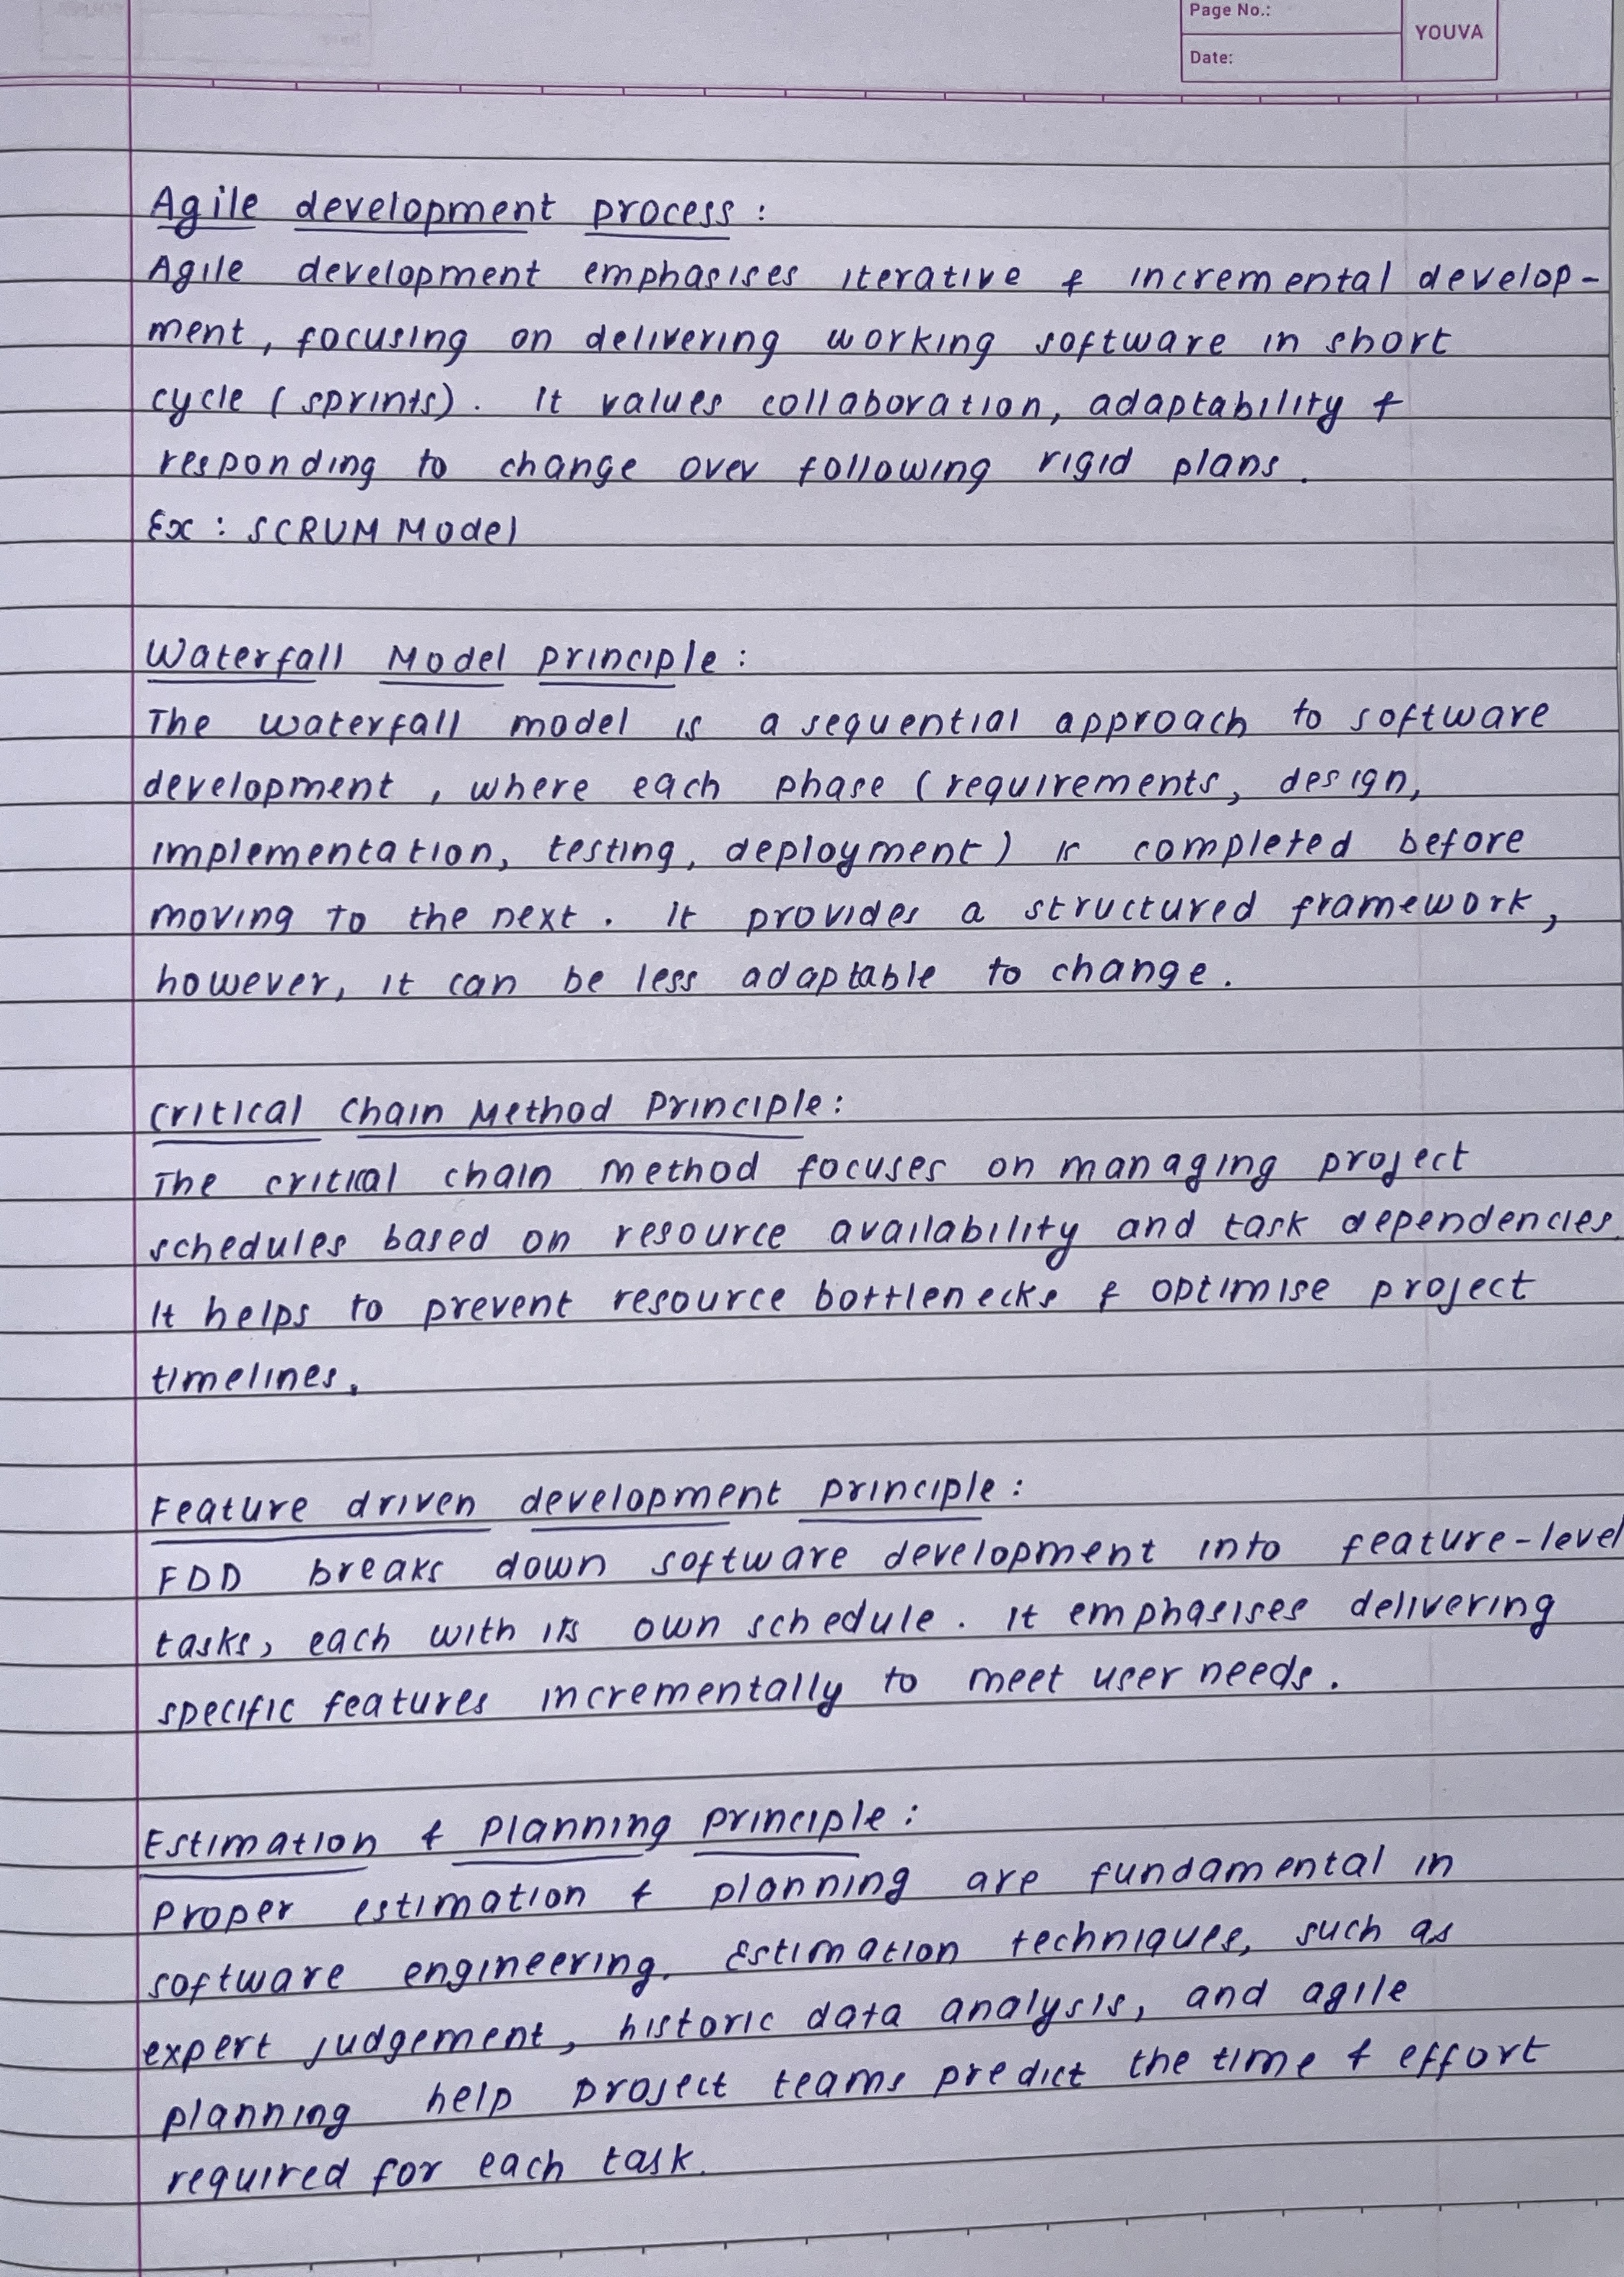 Page No.:
YOUVA
Date:
Agile development process :
Agile development emphasises iterative & incremental develop-
ment, focusing on delivering working software in short
cycle (sprints). It values collaboration, adaptability &
responding to change over following rigid plans.
Ex : SCRUM Model
Waterfall Model principle :
The waterfall model is a sequential approach to software
development, where each phase (requirements, design,
implementation, testing, deployment) is completed before
moving to the next. It provides a structured framework,
however, it can be less adaptable to change.
Critical Chain Method Principle :
The critical chain method focuses on managing project
schedules based on resource availability and task dependencies.
It helps to prevent resource bottlenecks & optimise project
timelines.
Feature driven development principle :
FDD breaks down software development into feature-level
tasks, each with its own schedule. It emphasises delivering
specific features incrementally to meet user needs.
Estimation & Planning principle :
Proper estimation & planning are fundamental in
software engineering. Estimation techniques, such as
expert judgement, historic data analysis, and agile
planning help project teams predict the time & effort
required for each task.